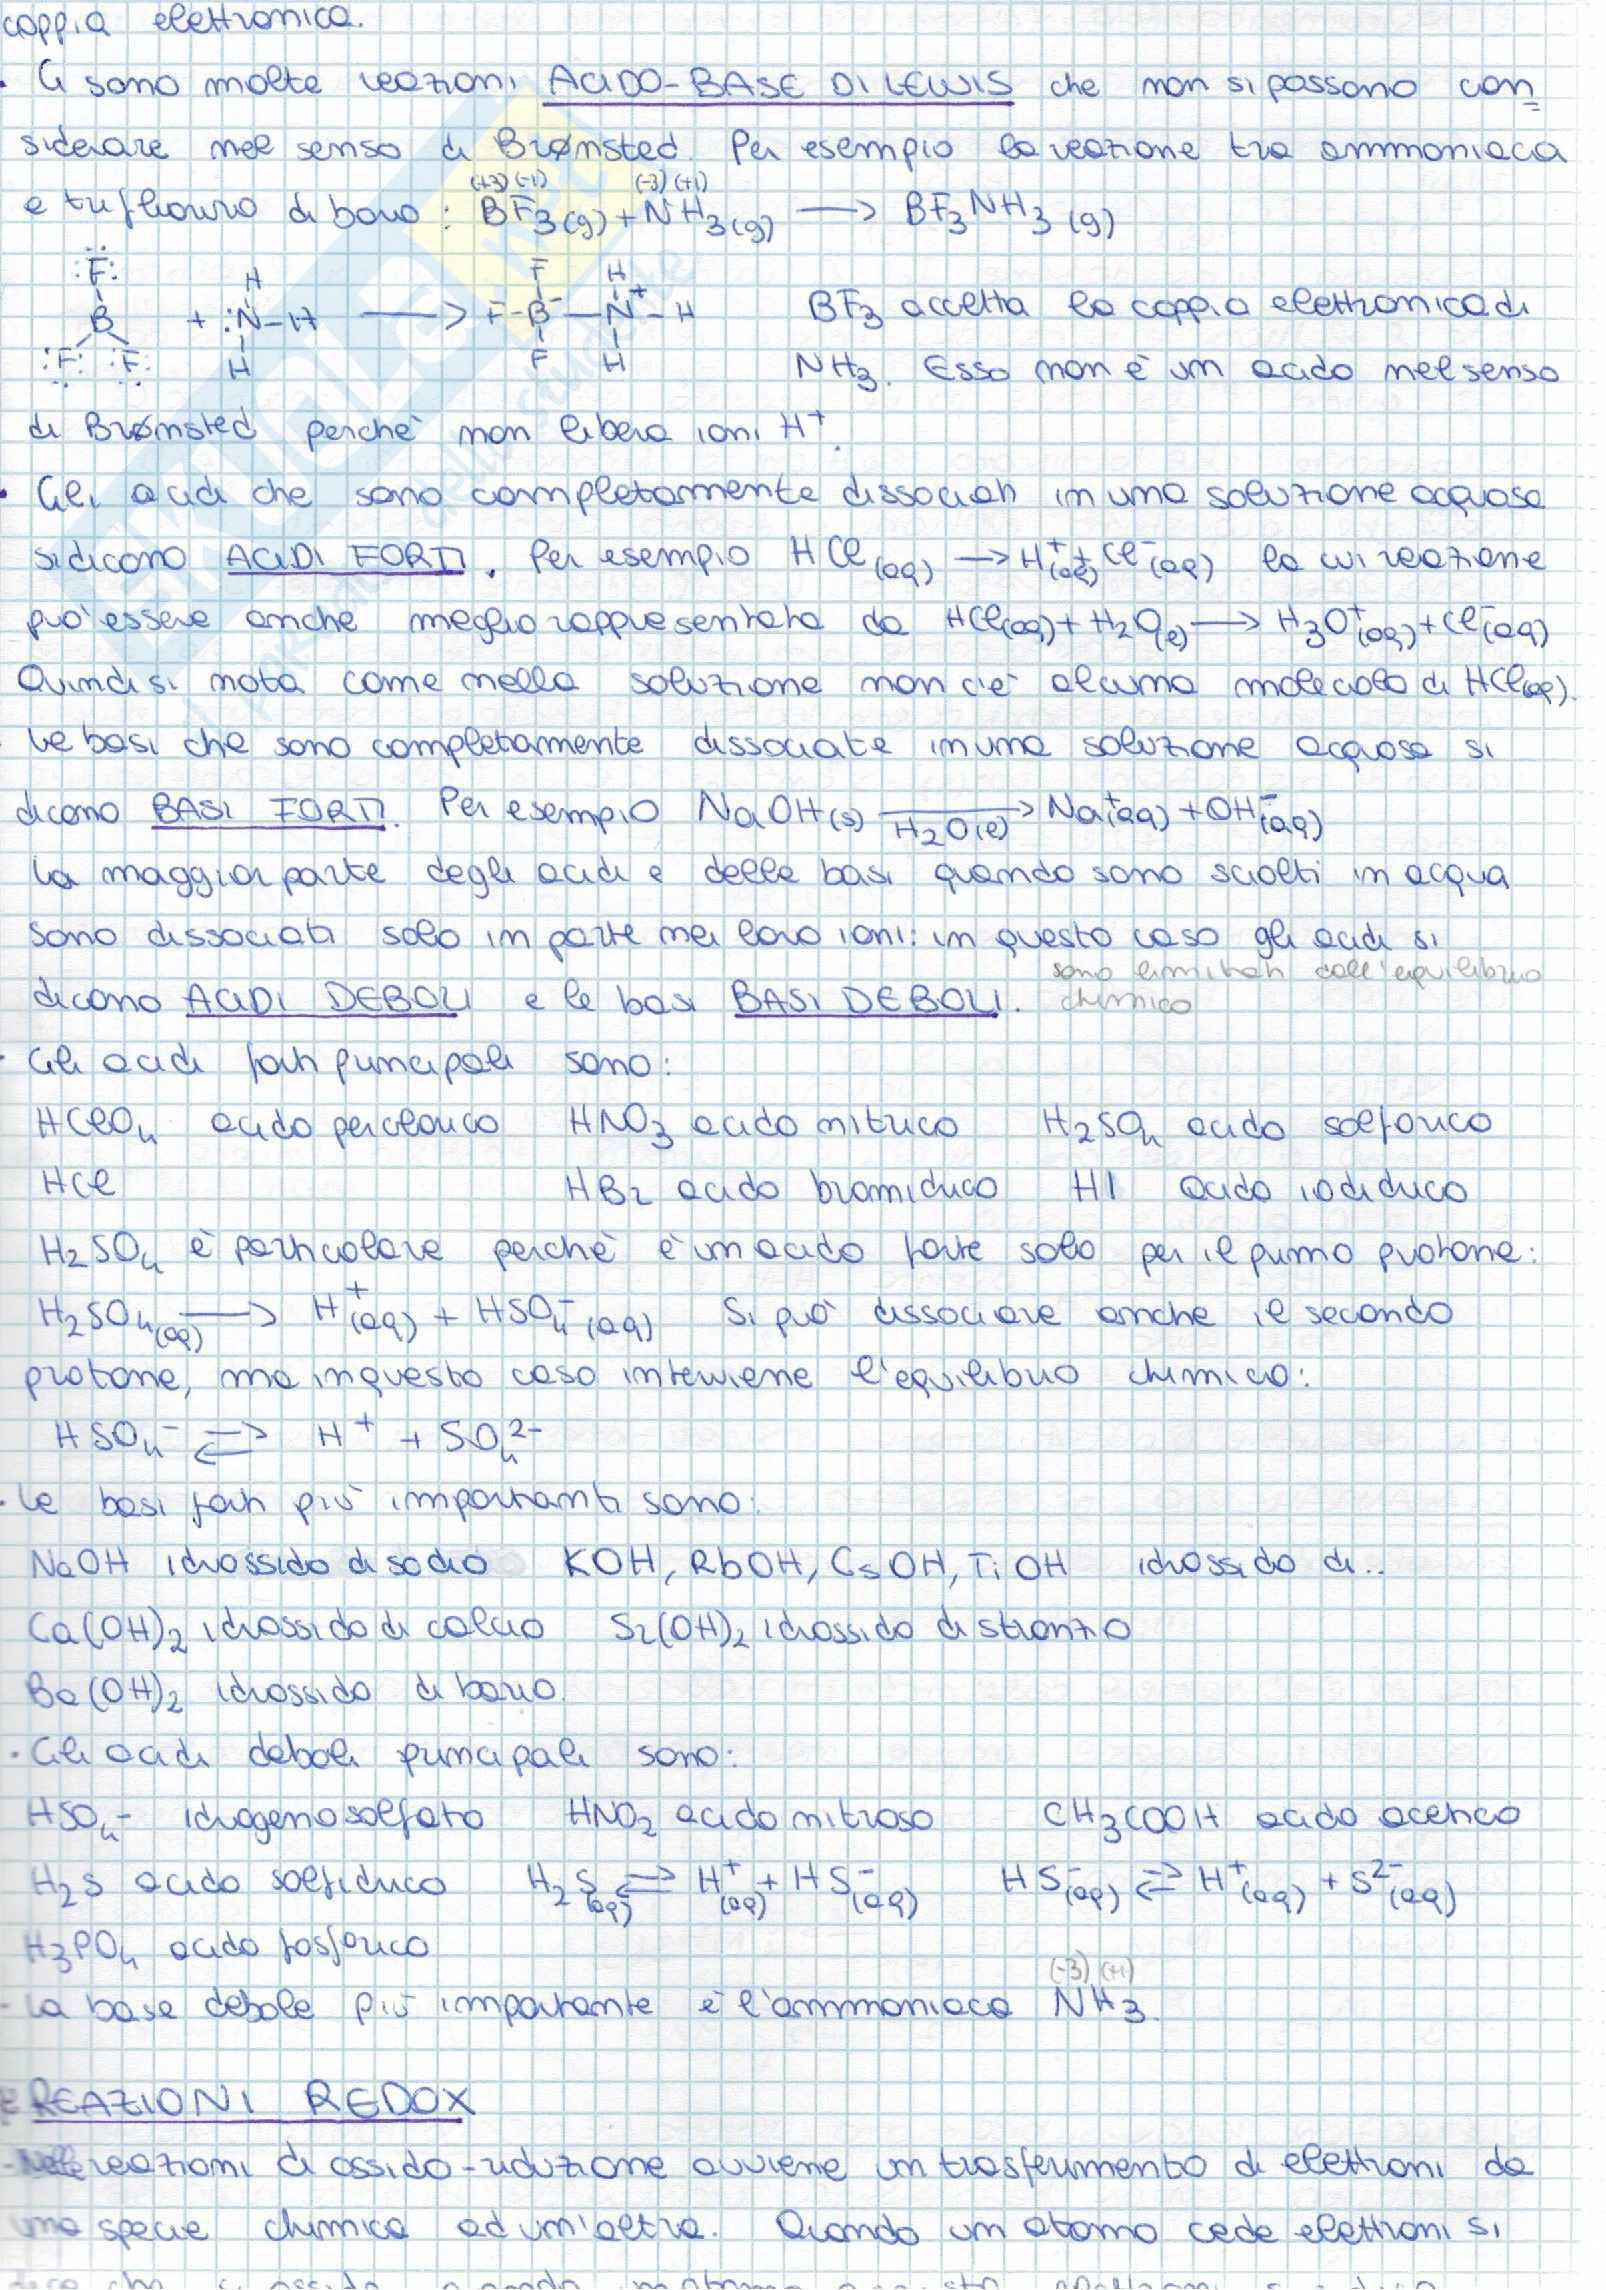 coppia elettronica.
· Ci sono molte reazioni ACIDO-BASE DI LEWIS che non si possono con=
siderare nel senso di Brønsted. Per esempio la reazione tra ammoniaca
(+3) (-1) (-3) (+1)
e trifluoruro di boro : BF₃(g) + NH₃(g) → BF₃NH₃ (g)
F H F H
B + :N-H → F-B⁻-N⁺-H BF₃ accetta la coppia elettronica di
F F H F H NH₃. Esso non è un acido nel senso
di Brønsted perchè non libera ioni H⁺.
· Gli acidi che sono completamente dissociati in una soluzione acquosa
si dicono ACIDI FORTI. Per esempio HCl(aq) → H⁺(aq) + Cl⁻(aq) la cui reazione
può essere anche meglio rappresentata da HCl(aq) + H₂O(l) → H₃O⁺(aq) + Cl⁻(aq)
Quindi si nota come nella soluzione non c'è alcuna molecola di HCl(aq).
· Le basi che sono completamente dissociate in una soluzione acquosa si
dicono BASI FORTI. Per esempio NaOH(s) →H₂O(l) Na⁺(aq) + OH⁻(aq)
La maggior parte degli acidi e delle basi quando sono sciolti in acqua
sono dissociati solo in parte nei loro ioni: in questo caso gli acidi si
sono limitati dall'equilibrio
dicono ACIDI DEBOLI e le basi BASI DEBOLI. chimico
· Gli acidi forti principali sono:
HClO₄ acido perclorico HNO₃ acido nitrico H₂SO₄ acido solforico
HCl HBr acido bromidrico HI acido iodidrico
H₂SO₄ è particolare perchè è un acido forte solo per il primo protone:
H₂SO₄(aq) → H⁺(aq) + HSO₄⁻(aq) Si può dissociare anche il secondo
protone, ma in questo caso interviene l'equilibrio chimico:
HSO₄⁻ ⇄ H⁺ + SO₄²⁻
· Le basi forti più importanti sono:
NaOH idrossido di sodio KOH, RbOH, CsOH, TiOH idrossido di..
Ca(OH)₂ idrossido di calcio Sr(OH)₂ idrossido di stronzio
Ba(OH)₂ idrossido di bario.
· Gli acidi deboli principali sono:
HSO₄⁻ idrogenosolfato HNO₂ acido nitroso CH₃COOH acido acetico
H₂S acido solfidrico H₂S(aq) ⇄ H⁺(aq) + HS⁻(aq) HS⁻(aq) ⇄ H⁺(aq) + S²⁻(aq)
H₃PO₄ acido fosforico
(-3) (+1)
- La base debole più importante è l'ammoniaca NH₃.
REAZIONI REDOX
- Nelle reazioni di ossido-riduzione avviene un trasferimento di elettroni da
una specie chimica ad un'altra. Quando un atomo cede elettroni si